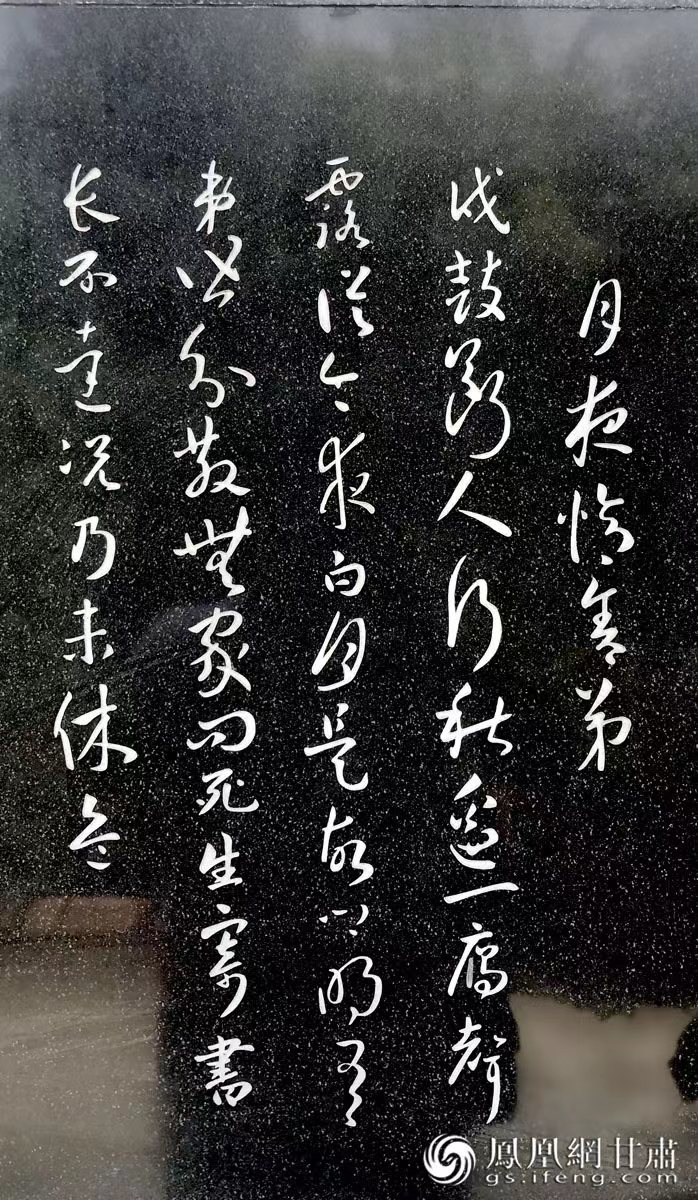 月夜憶舍弟
戍鼓斷人行秋邊一雁聲
露從今夜白月是故鄉明有
弟皆分散無家問死生寄書
长不達况乃未休兵
鳳凰網甘肅
gs.ifeng.com